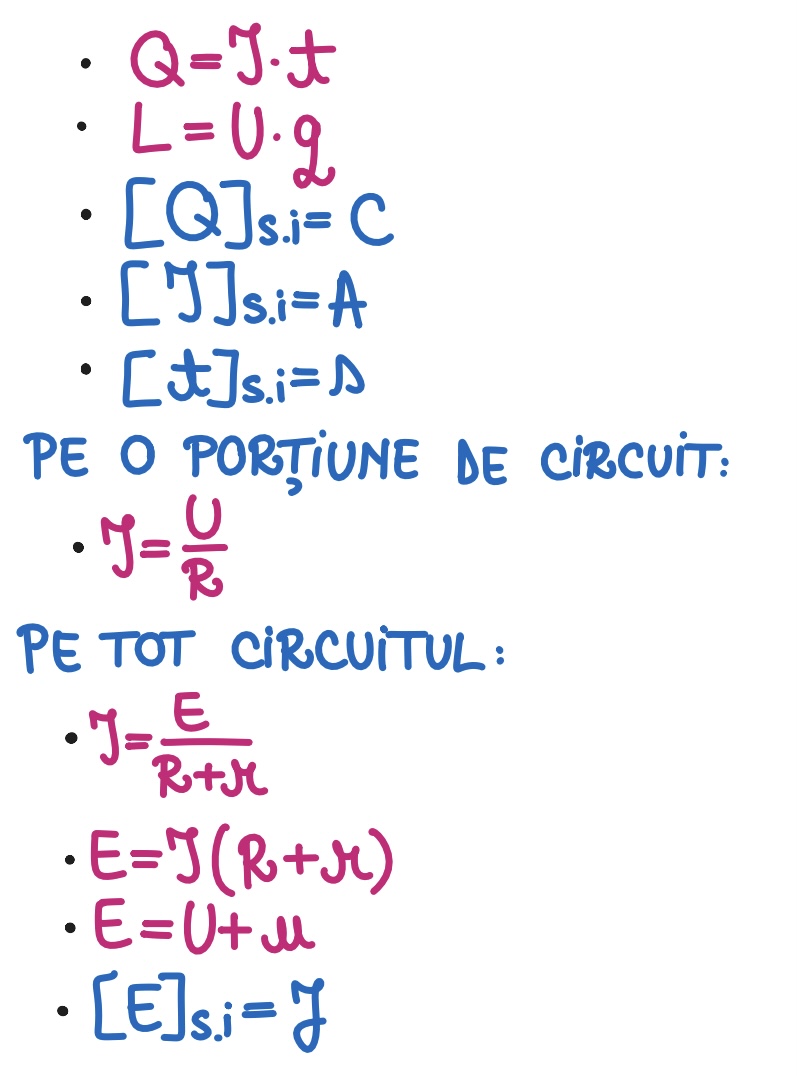 • Q = I · t
• L = U · q
• [Q]s.i = C
• [I]s.i = A
• [t]s.i = s
PE O PORȚiUNE DE CiRCUiT:
• I = U/R
PE TOT CiRCUiTUL:
• I = E/(R+r)
• E = I(R+r)
• E = U + u
• [E]s.i = J